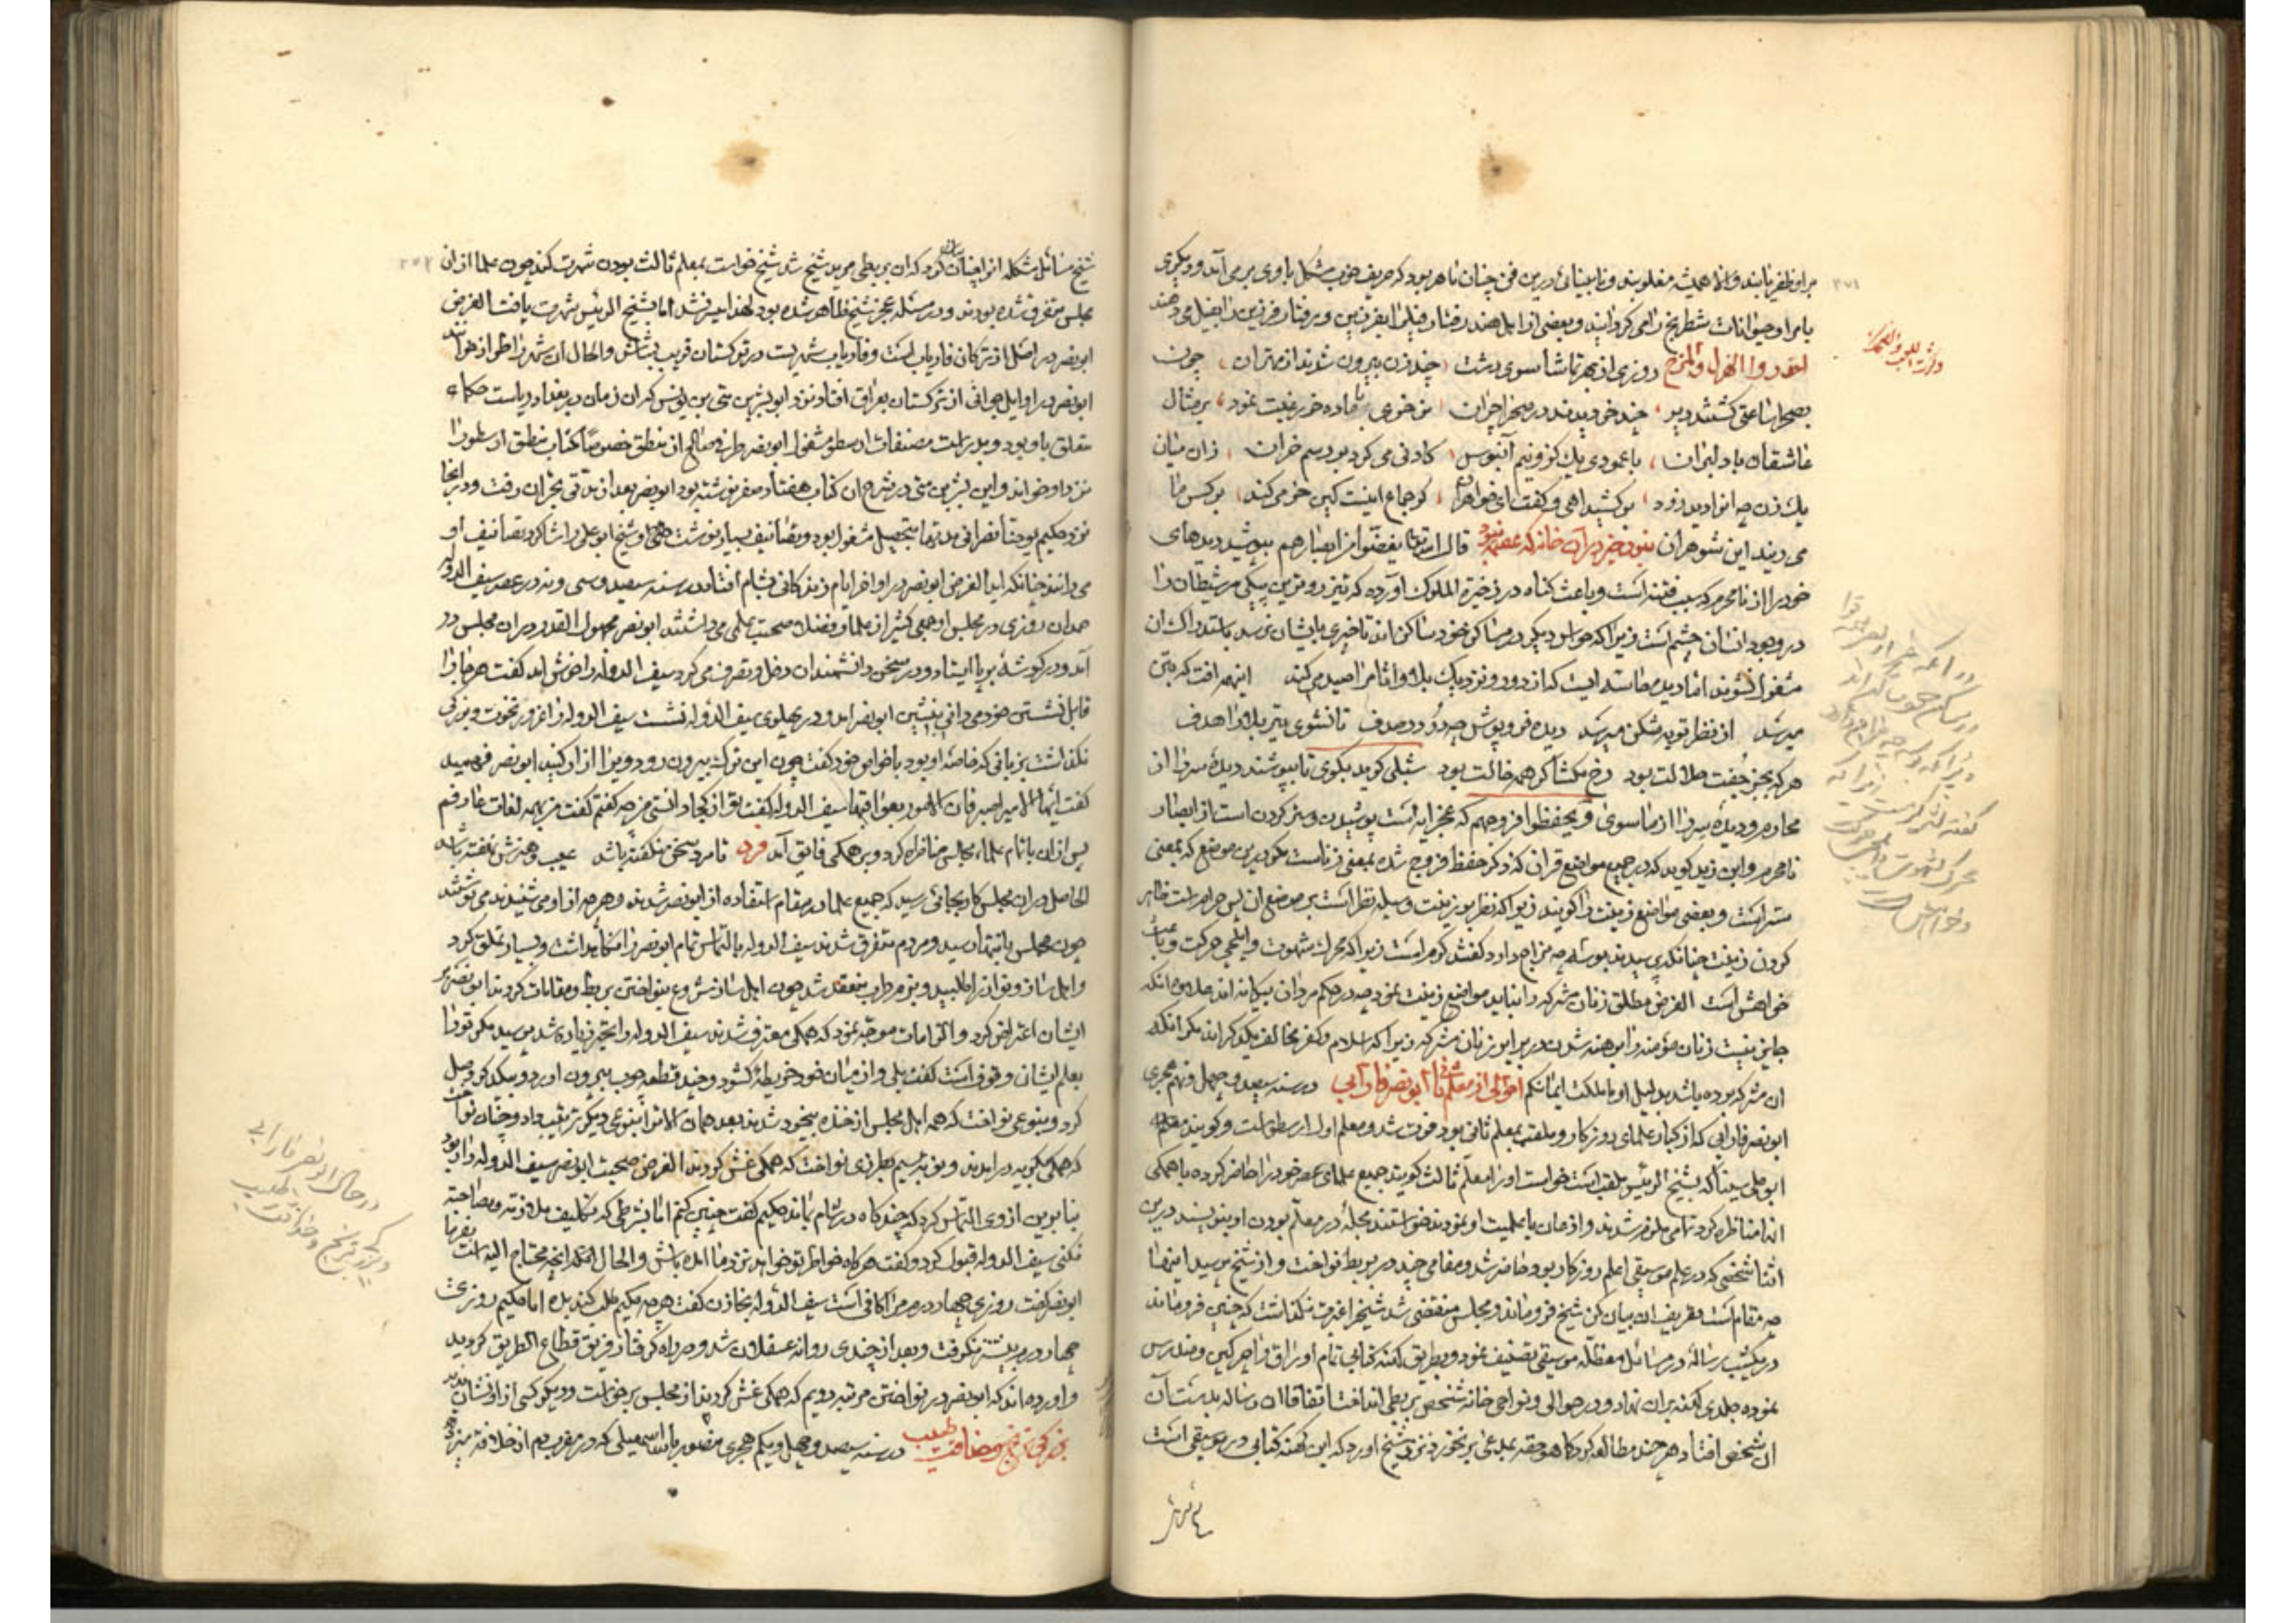 بر او ظفر نیابند و الا همیشه مغلوبند و نابینائی درین فن چنان ماهر بود که حریف خوب مشکل با وی بر می آمد و دیگری
با مر او حیوانات شطرنج را می کردانید و بعضی از اهل هند رفتار فیل را بفرزین و رفتار فرزین را بفیل می دهند
احذروا الهزل والمزح روزی از بهر تماشا سوی دشت چند زن بیرون شدند از مهتران چون
بصحرا ساعتی کشتند دیر چند خر دیدند در صحرا چران نر خری با ماده خر رغبت نمود بر مثال
عاشقان با دلبران با عمودی یک کز و نیم آبنوس کادنی می کرد بر رسم خران زان میان
یک زن چه انرا دید زود بر کشید آهی و گفت ای خواهران کر جماع اینست کین خر می کند بر کس ما
می ریند این شوهران قال الله تعالی یغضوا من ابصارهم بپوشید دیدهای
خود را از نامحرم که سبب فتنه است و باعث کناه در ذخیرة الملوک آورده که تیز رو ترین پیکی مر شیطان را
در وجود انسان چشم است زیرا که حواس دیگر در مساکن خود ساکن اند تا چیزی بایشان نرسد باستدراک آن
مشغول نشوند اما دیده حاسه ایست که از دور و نزدیک بلا و اثام را صید می کند اینهمه آفت که بتن
میرسد از نظر توبه شکن میرسد دیده فرو پوش چو در در صدف تا نشوی تیر بلا را هدف
هر که بجز جفت حلالت بود رخ مکشا کر همه خالت بود شبلی کوید بکوی تا بپوشند دیده سر را از
محارم و دیده سر را از ما سوی و یحفظوا فروجهم که عجز آیه است پوشیدن و ستر کردن است از ابصار
نامحرم و ابن زید کوید که در جمیع مواضع قران که ذکر حفظ فروج شده بمعنی زناست مکر درین موضع که بمعنی
ستر است و بعضی مواضع زینت را کویند زیرا که نظر بر زینت وسیله نظر است بر موضع آن پس حرام است ظاهر
کردن زینت چنانکه
خواهش است الغرض مطلق زنان مشرکه را نباید مواضع زینت نمود چه در حکم مردان بیکانه اند علاوه انکه
جایز نیست زنان مؤمنه را برهنه شدن در برابر زنان مشرکه زیرا که اسلام و کفر مخالف یکدیکر اند مکر انکه
آن مشرکه برده باشد بدلیل او ما ملکت ایمانکم احوالی از معلم ثانی ابو نصر فارابی در سنه سیصد و چهل و نهم هجری
ابو نصر فارابی که از کبار علمای روزکار و ملقب بمعلم ثانی بود فوت شد و معلم اول ارسطو است و کویند مقدمه
ابو علی سینا که بشیخ الرئیس ملقب است خواست او را معلم ثالث کویند جمیع علمای عصر خود را حاضر کرده با همکی
انها مناظره کرد تمامی ملزم شدند و اذعان باعلمیت او نمودند خواستند مجله در معلم بودن او بنویسند درین
اثنا شخصی که در علم موسیقی اعلم روزکار بود حاضر شد و مقامی چند در بربط نواخت و از شیخ پرسید اینها
چه مقام است و تعریف آن بیان کن شیخ فرو ماند و مجلس منقضی شد شیخ را غیرت نکذاشت که چنین فرو ماند
در یکشب رساله در مسائل معظله موسیقی تصنیف نمود و بطریق کهنه کتابی تمام اوراق را چرکین و مندرس
نموده جلدی کهنه بران نهاد و در حوالی و نواحی خانه شخص بربطی انداخت اتفاقا ان رساله بدست آن
آن شخص افتاد هر چند مطالعه کرد کما هو حقه بمدعی بر نخورد نزد شیخ آورد که این کهنه کتابی در موسیقی است
شیخ مسائل مشکله انرا بیان کرد که ان بربطی مرید شیخ شد شیخ خواست بمعلم ثالث بودن شهرت کند چون علما از ان
مجلس متفرق شده بودند و در مسئله عجز شیخ ظاهر شده بود لهذا میسر نشد اما بشیخ الرئیس شهرت یافت الغرض
ابو نصر در اصل از ترکان فاریاب است و فاریاب شهریست در ترکستان قریب بشاش و الحال ان شهر را اطرار خوانند
ابو نصر در اوایل جوانی از ترکستان بعراق افتاد نزد ابو بشر بن متی بن یونس که ان زمان در بغداد ریاست حکماء
متعلق باو بود و بدراست مصنفات ارسطو مشغول ابو نصر طرفی صالح از منطق خصوصا کتاب منطق ارسطو را
نزد او خواند و این بشر بن متی در شرح ان کتاب هفتاد سفر نوشته بود ابو نصر بعد از مدتی بحران رفت و در انجا
نزد حکیم یوحنا نصرانی مدتها بتحصیل مشغول بود و تصانیف بسیار نوشت همکی و شیخ ابو علی را شاکرد تصانیف او
می دانند چنانکه آید الغرض ابو نصر در اواخر ایام زندکانی بشام افتاد در سنه سیصد و سی و نه در عصر سیف الدوله
حمدان روزی در مجلس او جمعی کثیر از علما و فضلا صحبت علمی می داشتند ابو نصر مجهول القدر در ان مجلس در
آمد و در کوشه بر پا ایستاد و در سخن دانشمندان دخل و تصرف می کرد سیف الدوله را خوش آمد گفت هر جا را
قابل نشستن خود می دانی بنشین ابو نصر آمد و در پهلوی سیف الدوله نشست سیف الدوله را غرور نخوت و بزرکی
نکذاشت بزبانی که خاصه او بود با خواص خود گفت چون این ترک بیرون رود ویرا آزار کنید ابو نصر فهمید
گفت ایها الامیر اصبر فان الامور بعواقبها سیف الدوله گفت تو از کجا دانستی من چه گفتم گفت من بهمه لغات عارفم
پس از ان با تمام علماء مجلس مناظره کرد و بر همکی فایق آمد فرد تا مرد سخن نکفته باشد عیب و هنرش نهفته باشد
الحاصل در ان مجلس کار بجائی رسید که جمیع علما در مقام استفاده از ابو نصر شدند و هر چه از او می شنیدند می نوشتند
چون مجلس بانتها رسید و مردم متفرق شدند سیف الدوله بالتماس تمام ابو نصر را نکاهداشت و بسیار تملق کرد
و اهل ساز و نوا را طلبید و بزم طرب منعقد شد چون اهل ساز شروع بنواختن بربط و مقامات کردند ابو نصر بر
ایشان اعتراض کرد و الزامات موجه نمود که همکی معترف شدند سیف الدوله را تحیر زیاده شد پرسید مکر تو را
بعلم ایشان وقوف است گفت بلی و از میان خود خریطه کشود و چند قطعه چوب بیرون آورد و بیکدیکر وصل
کرد و بنوعی نواخت که همه اهل مجلس از خنده بیخود شدند بعد همان الات را بنوعی دیکر ترتیب داد و چنان نواخت
که همکی بکریه در آمدند و نوبه سیم بطرزی نواخت که همکی غش کردند الغرض صحبت ابو نصر سیف الدوله را
بنا برین از وی التماس کرد که چند کاه در شام بماند حکیم گفت چنین کنم اما بشرطی که تکلیف ملازمت و مصاحبت
نکنی سیف الدوله قبول کرد و گفت هر کاه خواطر تو خواهد نزد ما آمده باش و الحال آنچه محتاج الیه است بفرما
ابو نصر گفت روزی چهار درم مرا کافی است سیف الدوله بخازن گفت هر چه حکیم طلب کند بده اما حکیم روزی
چهار درم بیشتر نکرفت و بعد از چندی روانه عسقلان شد و در راه گرفتار فریق قطاع الطریق کردید
و آورده اند که ابو نصر در نواختن مرتبه دویم که همکی غش کردند از مجلس برخواست و دیکر کسی از او نشان نداد
در سنه سیصد و چهل و یکم هجری منصور بالله اسمعیلی که در مغرب دم از خلافت میزد
در حال ابو نصر فارابی